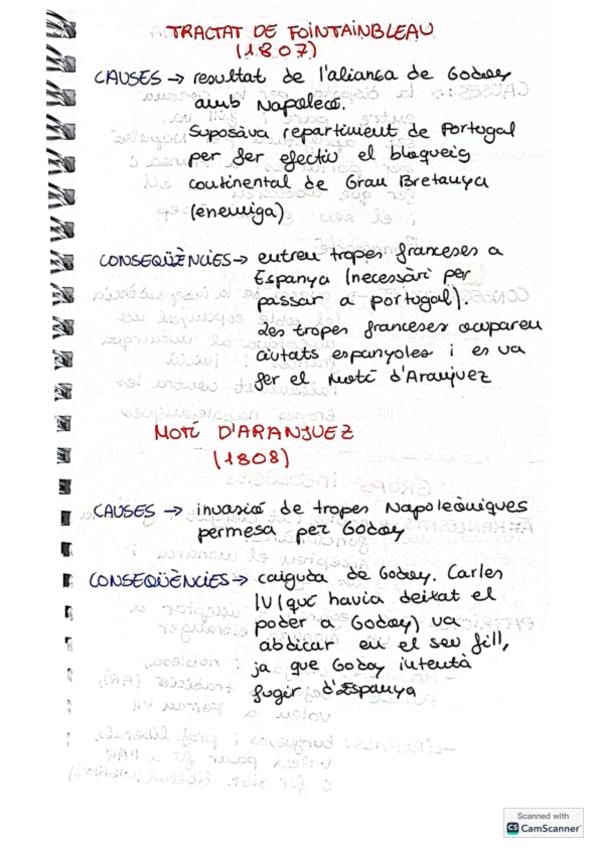 TRACTAT DE FOINTAINBLEAU
(1807)
CAUSES → resultat de l'aliança de Godoy
amb Napoleó.
Suposàva repartiment de Portugal
per fer efectiu el bloqueig
continental de Gran Bretanya
(enemiga)
CONSEQÜÈNCIES → entren tropes franceses a
Espanya (necessàri per
passar a portugal).
Les tropes franceses ocuparen
ciutats espanyoles i es va
fer el Motí d'Aranjuez
MOTÍ D'ARANJUEZ
(1808)
CAUSES → invasió de tropes Napoleòniques
permesa per Godoy
CONSEQÜÈNCIES → caiguda de Godoy. Carles
IV (que havia deixat el
poder a Godoy) va
abdicar en el seu fill,
ja que Godoy intentà
fugir d'Espanya
Scanned with
CS CamScanner